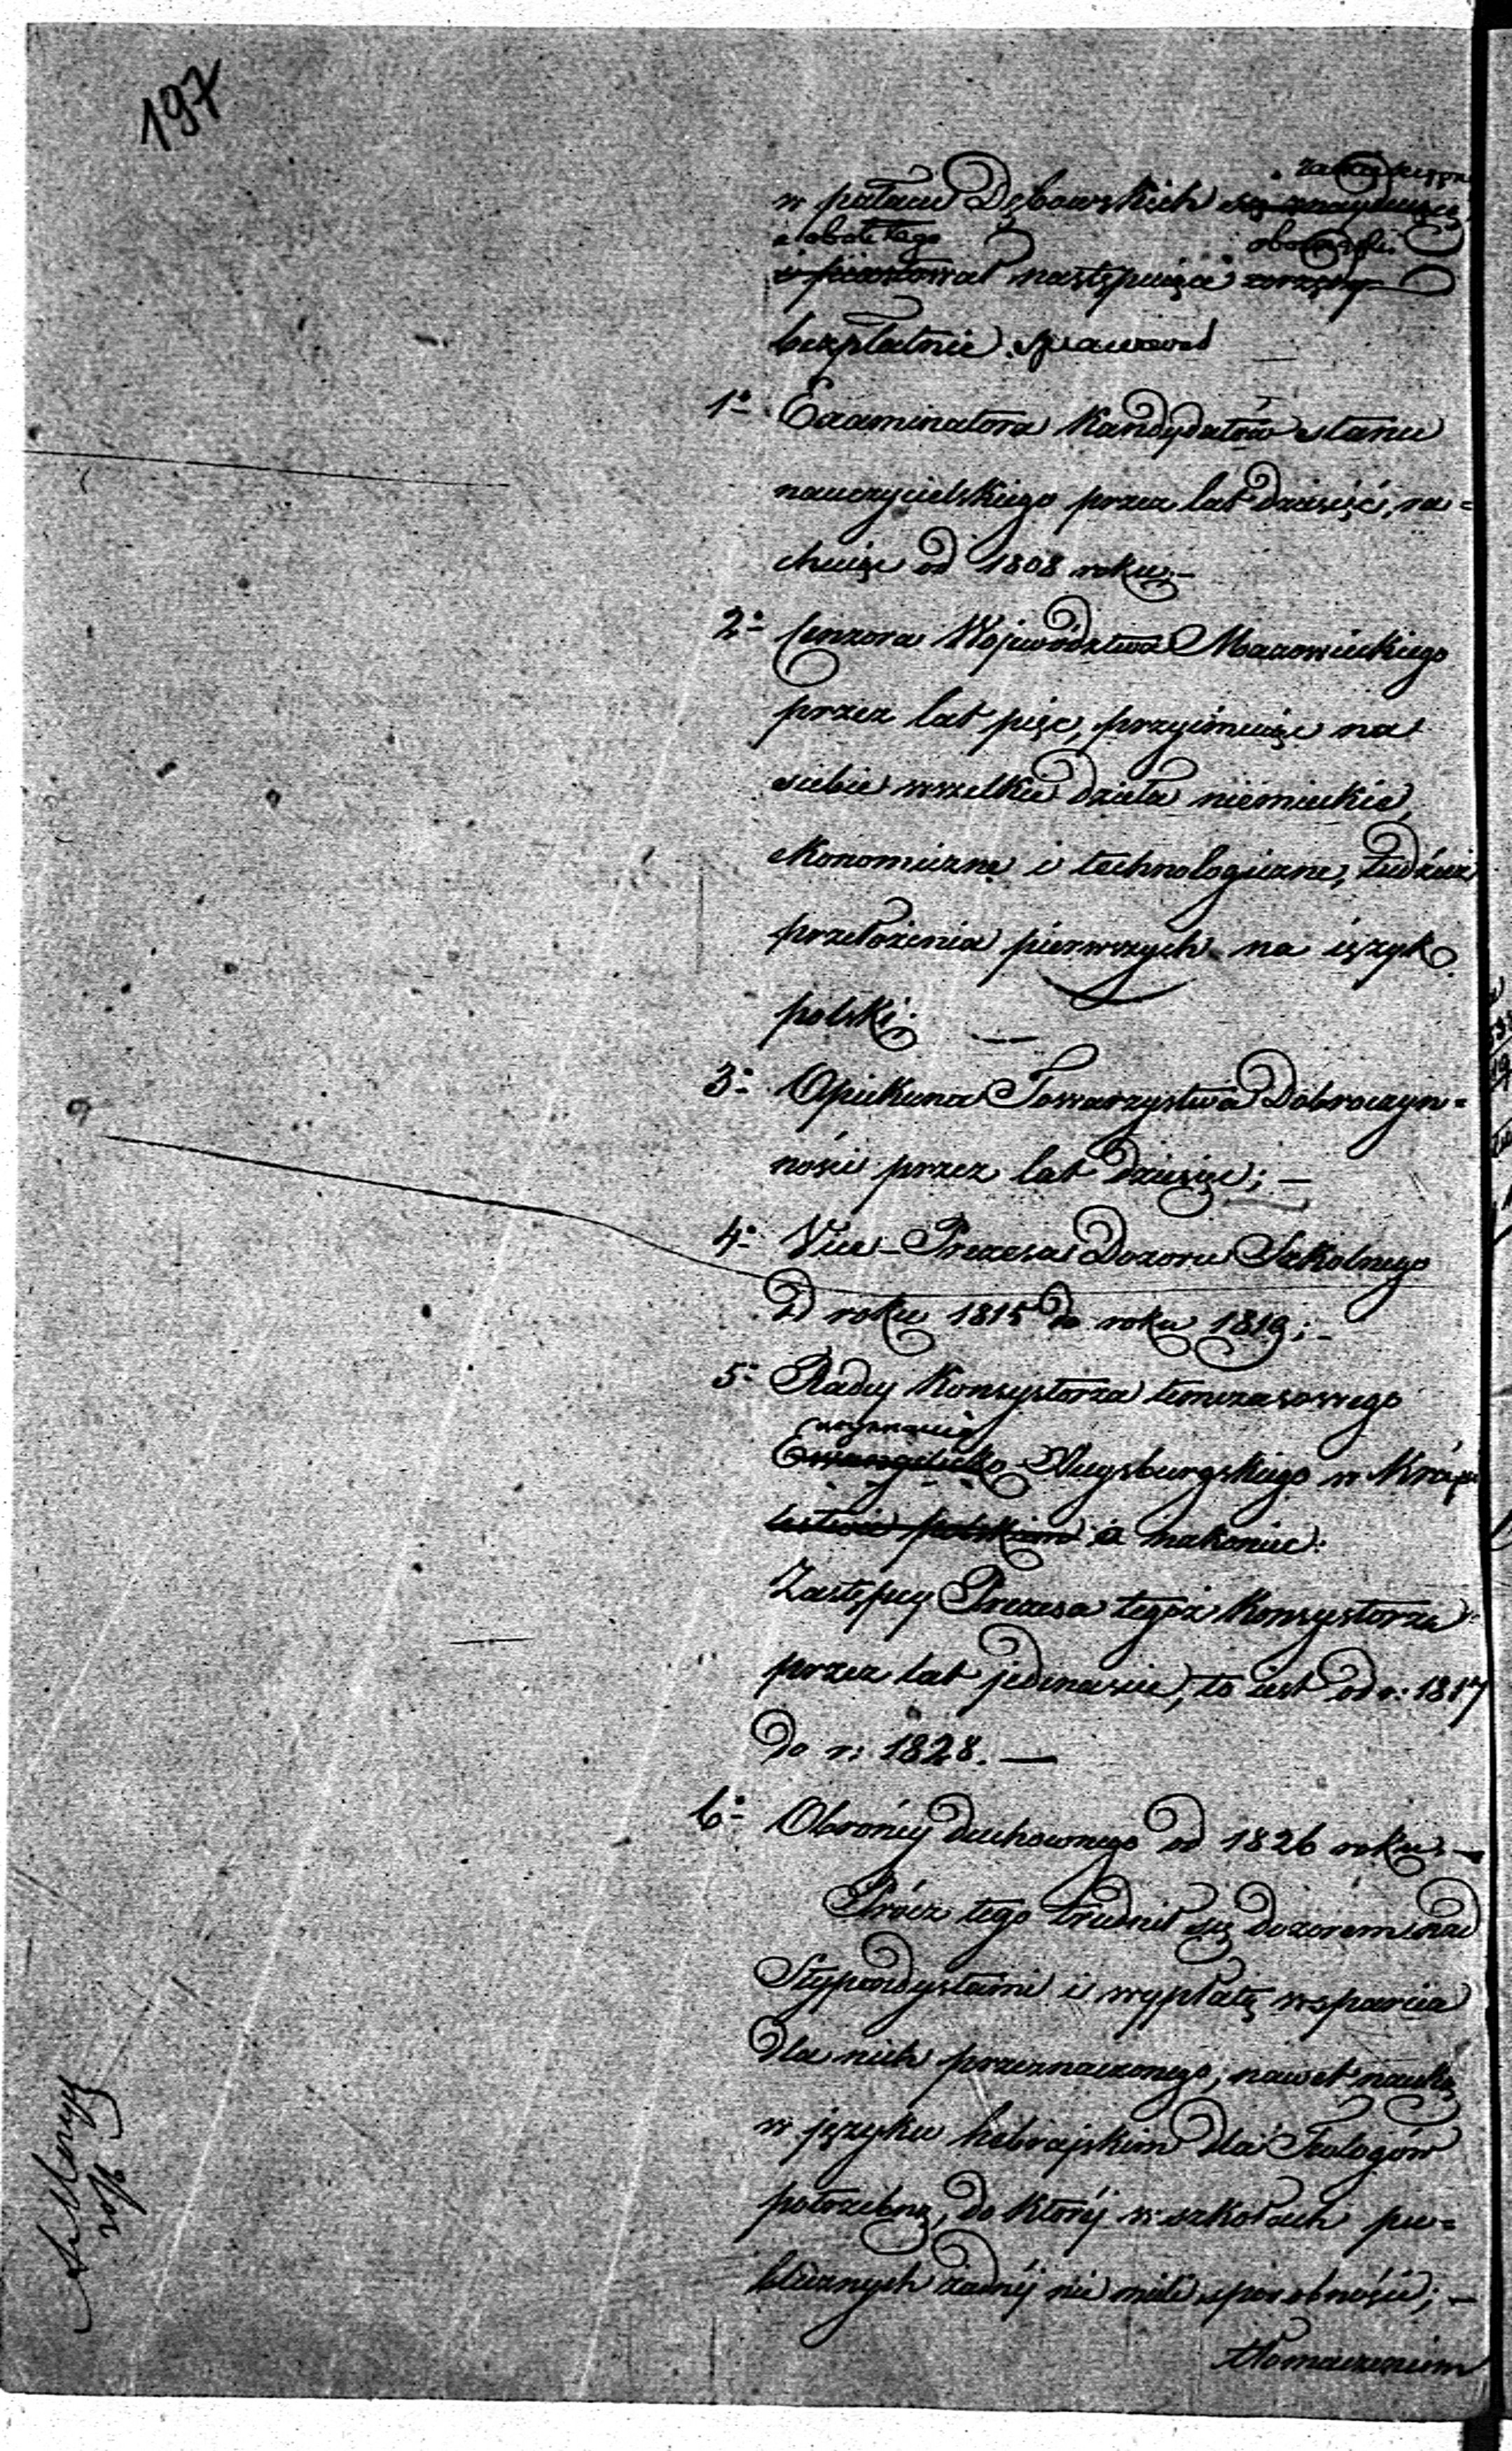 197
w pałacu Dębowskich
obok tego
i piastował następujące
bezpłatnie sprawował
1º Examinatora Kandydatów stanu
nauczycielskiego przez lat dziesięć, ra=
chuiąc od 1808 roku;—
2º Cenzora Województwa Mazowieckiego
przez lat pięc, przyimuiąc na
siebie wszelkie dzieła niemieckie,
ekonomiczne i technologiczne, tudzież
przełożenia pierwszych na ięzyk
polski. —
3º Opiekuna Towarzystwa Dobroczyn=
ności przez lat dziesięc; —
4º Vice-Prezesa Dozoru Szkolnego
Od roku 1815 do roku 1819; —
5º Radcy Konsystorza tymczasowego
wyznania
Ewangelicko-Augsburgskiego w Króle
lestwie polskiem a nakoniec:
Zastępcy Prezesa tegoż Konsystorza
przez lat jedenascie, to iest od r: 1817
do r: 1828. —
6º Obrońcy duchownego od 1826 roku. —
Prócz tego trudnił się dozorem nad
Stypendystami i wypłatą wsparcia
dla nich przeznaczonego; nawet nauką
w języku hebrajskim dla Teologów
potrzebną, do któréj w szkołach pu=
blicznych żadnéj nie mieli sposobności; —
tłomaczeniem